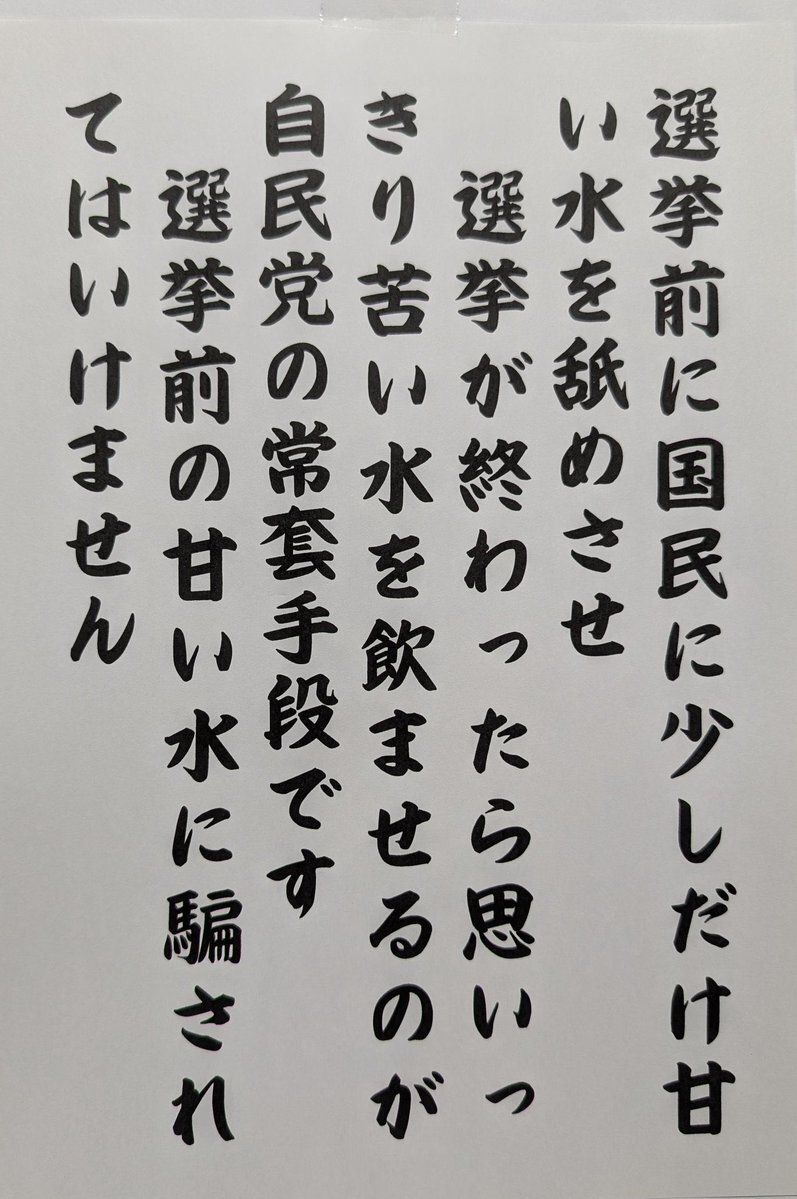 選挙前に国民に少しだけ甘
い水を舐めさせ
選挙が終わったら思いっ
きり苦い水を飲ませるのが
自民党の常套手段です
選挙前の甘い水に騙され
てはいけません